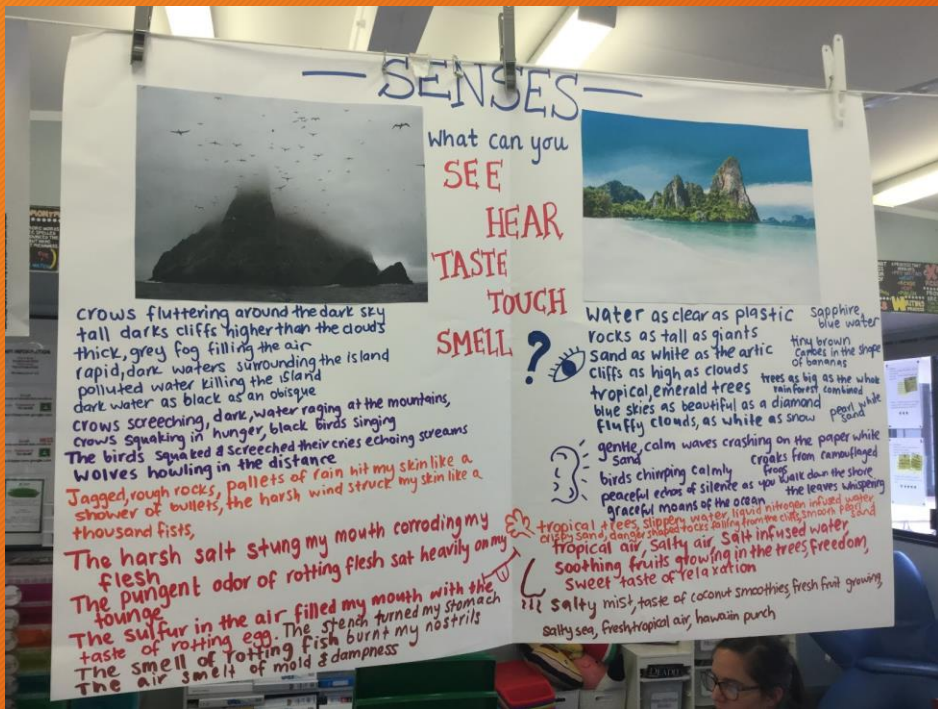 SENSES
What can you
SEE
HEAR
TASTE
TOUCH
SMELL
?
crows fluttering around the dark sky
tall darks cliffs higher than the clouds
thick, grey fog filling the air
rapid, dark waters surrounding the island
polluted water killing the island
dark water as black as an obisque
crows screeching, dark, water raging at the mountains,
crows squaking in hunger, black birds singing
The birds squaked & screeched their cries echoing screams
wolves howling in the distance
Jagged, rough rocks, pallets of rain hit my skin like a
shower of bullets, the harsh wind struck my skin like a
thousand fists,
The harsh salt stung my mouth corroding my
flesh
The pungent odor of rotting flesh sat heavily on my
tounge
The sulfur in the air filled my mouth with the
taste of rotting egg. The stench turned my stomach
The smell of rotting fish burnt my nostrils
The air smelt of mold & dampness
Water as clear as plastic
rocks as tall as giants
Sand as white as the artic
cliffs as high as clouds
tropical, emerald trees
blue skies as beautiful as a diamond
fluffy clouds, as white as snow
sapphire,
blue water
tiny brown
canoes in the shape
of bananas
trees as big as the whole
rainforest combined
pearl white
sand
gentle, calm waves crashing on the paper white
sand
croaks from camouflaged
frogs
birds chirping calmly
peaceful echos of silence as you walk down the shore
graceful moans of the ocean
the leaves whispering
tropical trees, slippery water, liquid nitrogen infused water,
crispy sand, danger shaped rocks falling from the cliffs, smooth pearl
sand
tropical air, salty air, salt infused water,
soothing fruits growing in the trees, freedom,
sweet taste of relaxation
salty mist, taste of coconut smoothies, fresh fruit growing,
salty sea, fresh tropical air, hawaiin punch